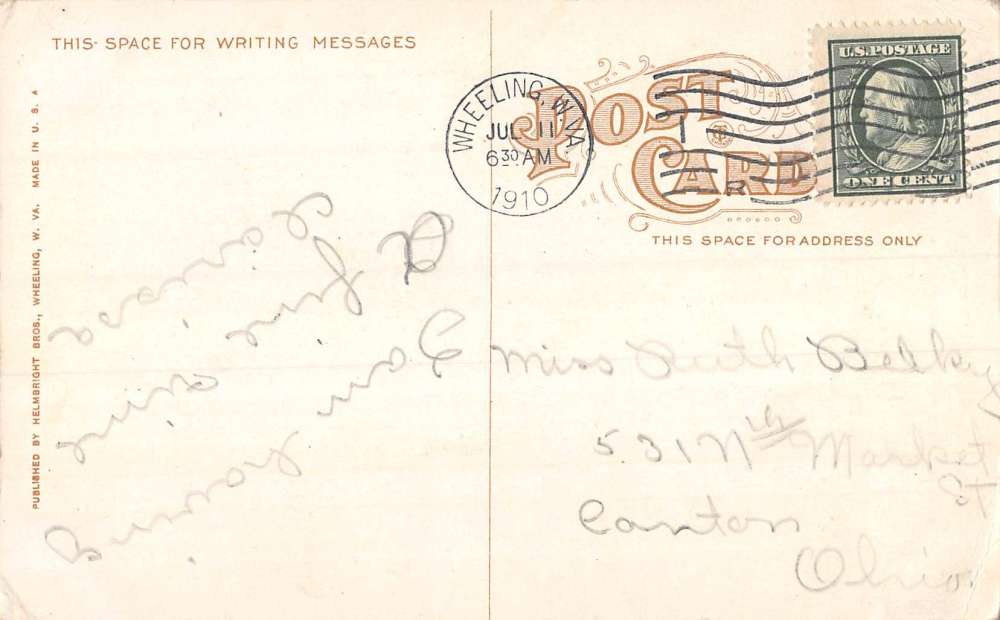 THIS SPACE FOR WRITING MESSAGES
PUBLISHED BY HELMBRIGHT BROS., WHEELING, W. VA. MADE IN U. S. A
I am having
a fine time
POST
CARD
WHEELING, W. VA.
JUL 11
6 30 AM
1910
U.S. POSTAGE
ONE CENT
THIS SPACE FOR ADDRESS ONLY
Miss Ruth
531 Nth Market
St
Canton
Ohio